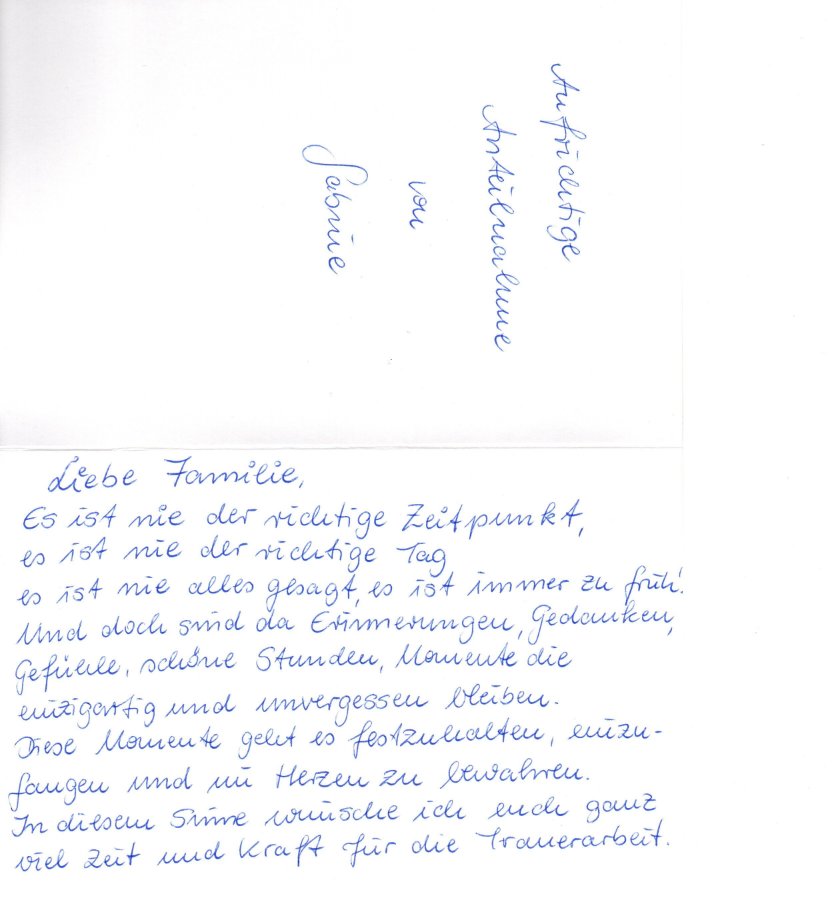 Aufrichtige
Anteilnahme
von
Sabine
Liebe Familie,
Es ist nie der richtige Zeitpunkt,
es ist nie der richtige Tag
es ist nie alles gesagt, es ist immer zu früh!
Und doch sind da Erinnerungen, Gedanken,
Gefühle, schöne Stunden, Momente die
einzigartig und unvergessen bleiben.
Diese Momente gelt es festzuhalten, einzu-
fangen und im Herzen zu bewahren.
In diesem Sinne wünsche ich euch ganz
viel Zeit und Kraft für die Trauerarbeit.